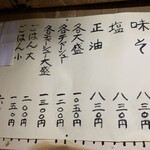 味そ 八三〇円
塩 八三〇円
正油 八三〇円
各大盛 一〇五〇円
各チャーシュー 一二〇〇円
各チャーシュー大盛 一三〇〇円
ごはん大 一五〇円
ごはん小